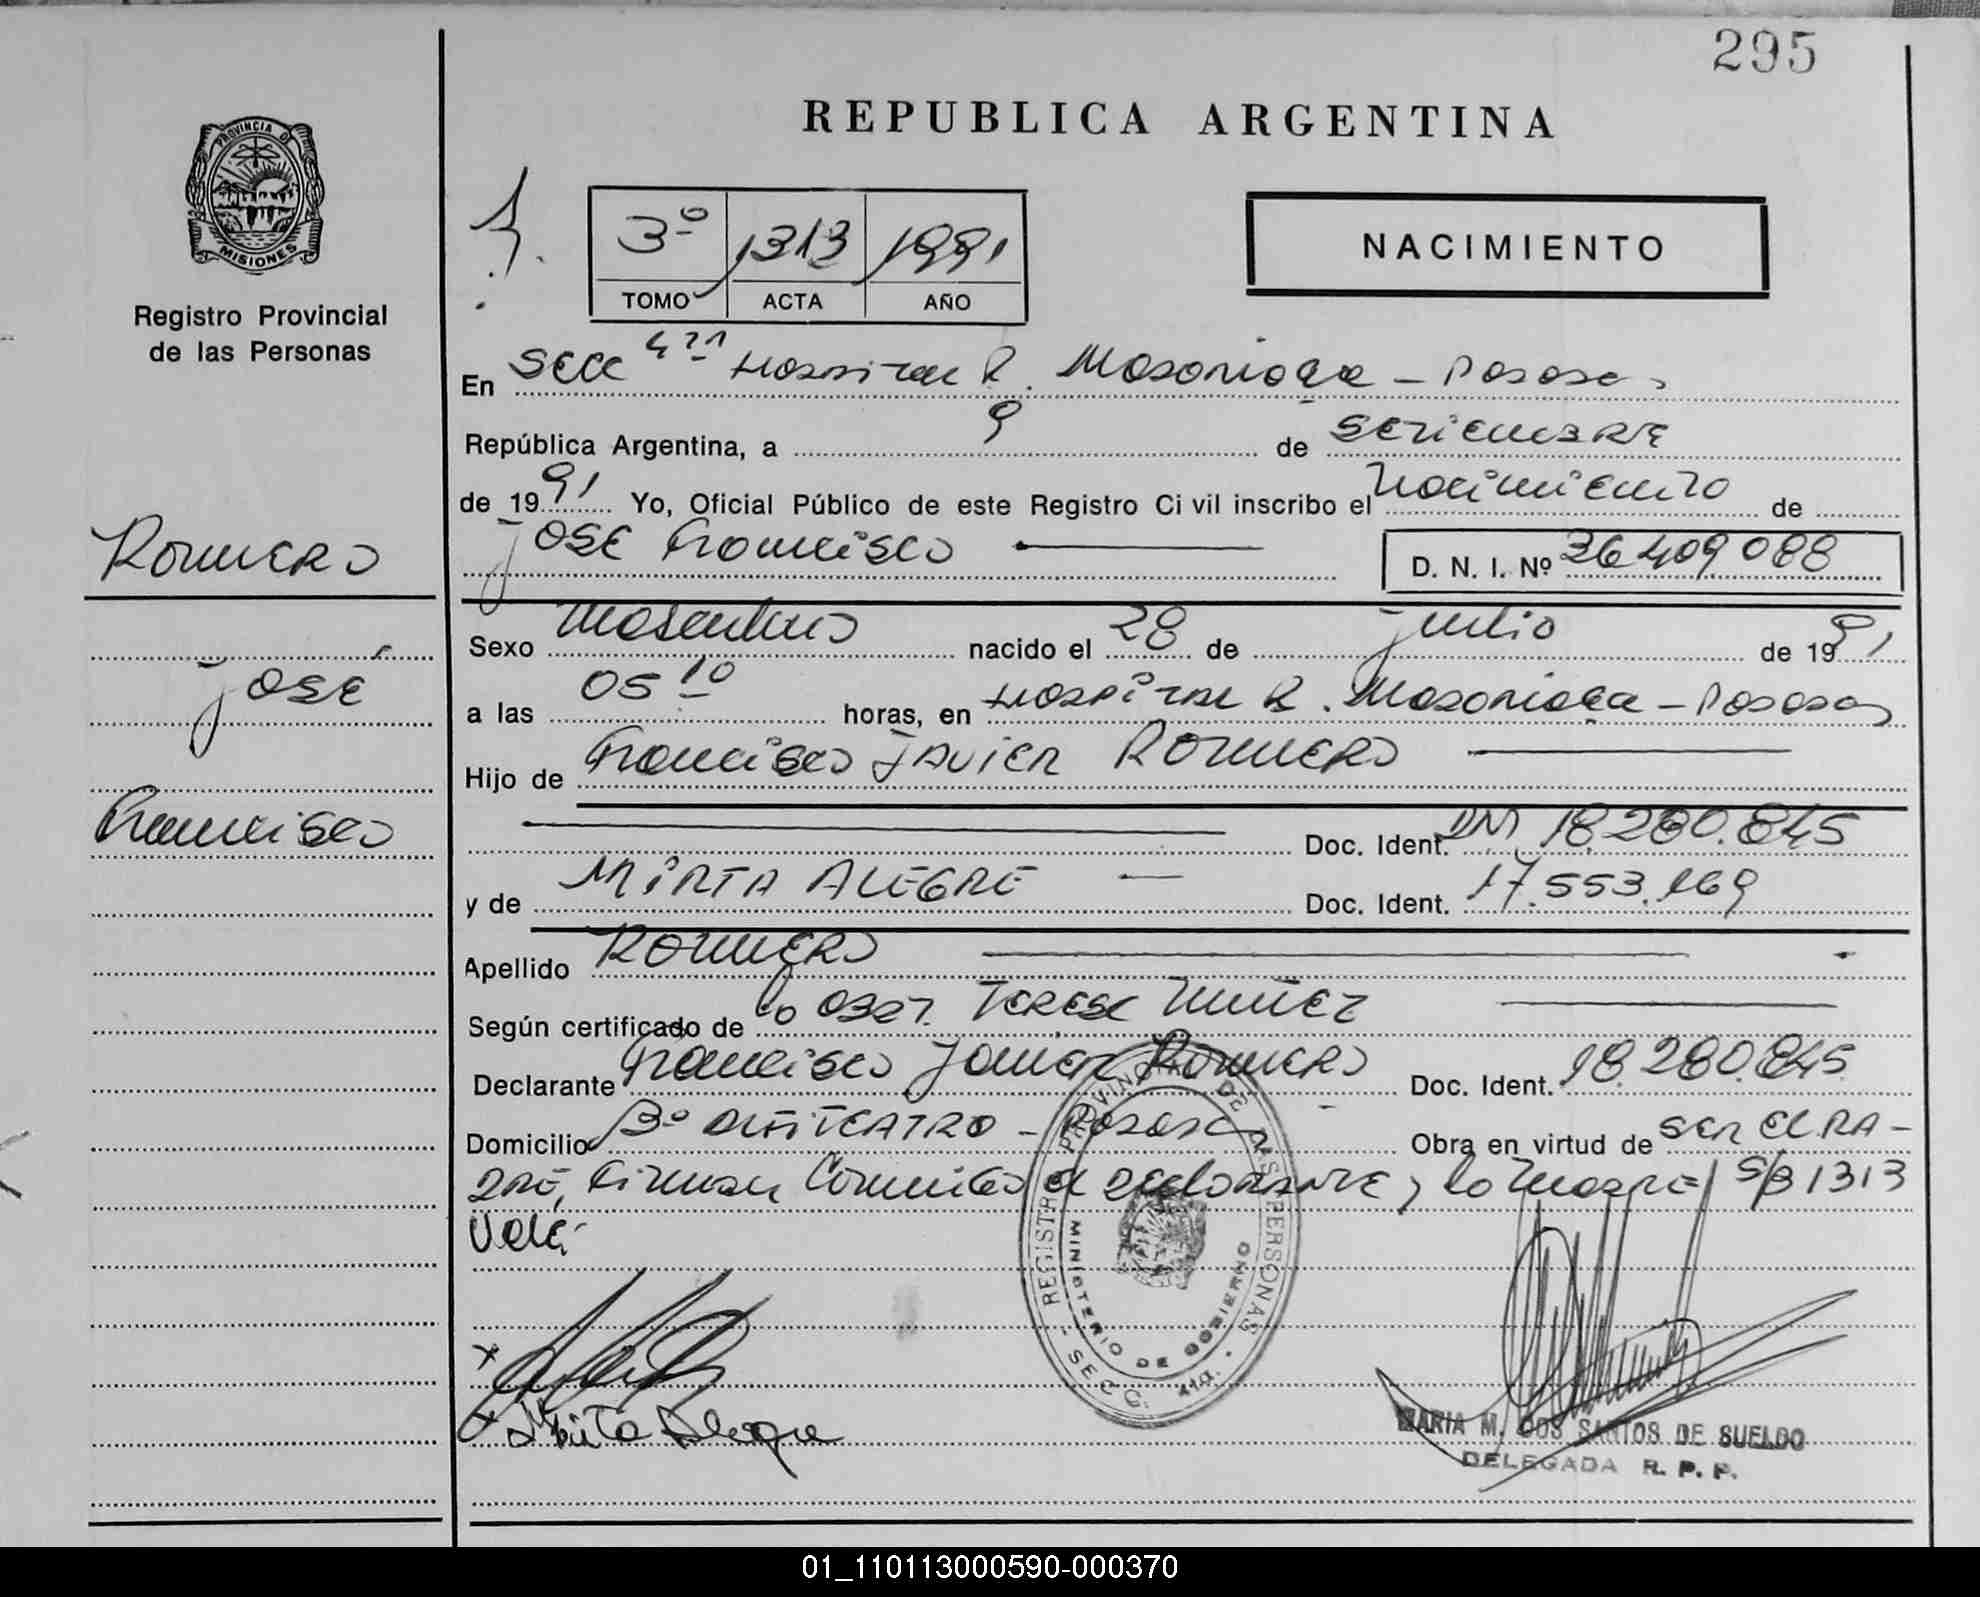 295
REPUBLICA ARGENTINA
PROVINCIA DE
MISIONES
Registro Provincial
de las Personas
3º 1313 1991
TOMO ACTA AÑO
NACIMIENTO
En Secc 4ta Hospital R. Madariaga - Posadas
República Argentina, a 9 de SETIEMBRE
de 1991 Yo, Oficial Público de este Registro Civil inscribo el Nacimiento de
JOSE Francisco
D. N. I. Nº 36409088
ROMERO
JOSÉ
Francisco
Sexo Masculino nacido el 28 de Julio de 1991
a las 05 10 horas, en HOSPITAL R. Madariaga - Posadas
Hijo de Francisco JAVIER ROMERO
Doc. Ident. DNI 18.280.845
y de MIRTA ALEGRE Doc. Ident. 17.553.169
Apellido ROMERO
Según certificado de la OBST. TERESA NUÑEZ
Declarante Francisco Javier ROMERO Doc. Ident. 18.280.845
Domicilio Bº ANFITEATRO - Posadas Obra en virtud de SER EL PA-
DRE, Firman Conmigo el declarante y la madre S/B 1313
Vale
REGISTRO PROVINCIAL DE LAS PERSONAS
MINISTERIO DE GOBIERNO
SECC. 4ta.
Mirta Alegre
MARIA M. DOS SANTOS DE SUELDO
DELEGADA R. P. P.
01_110113000590-000370